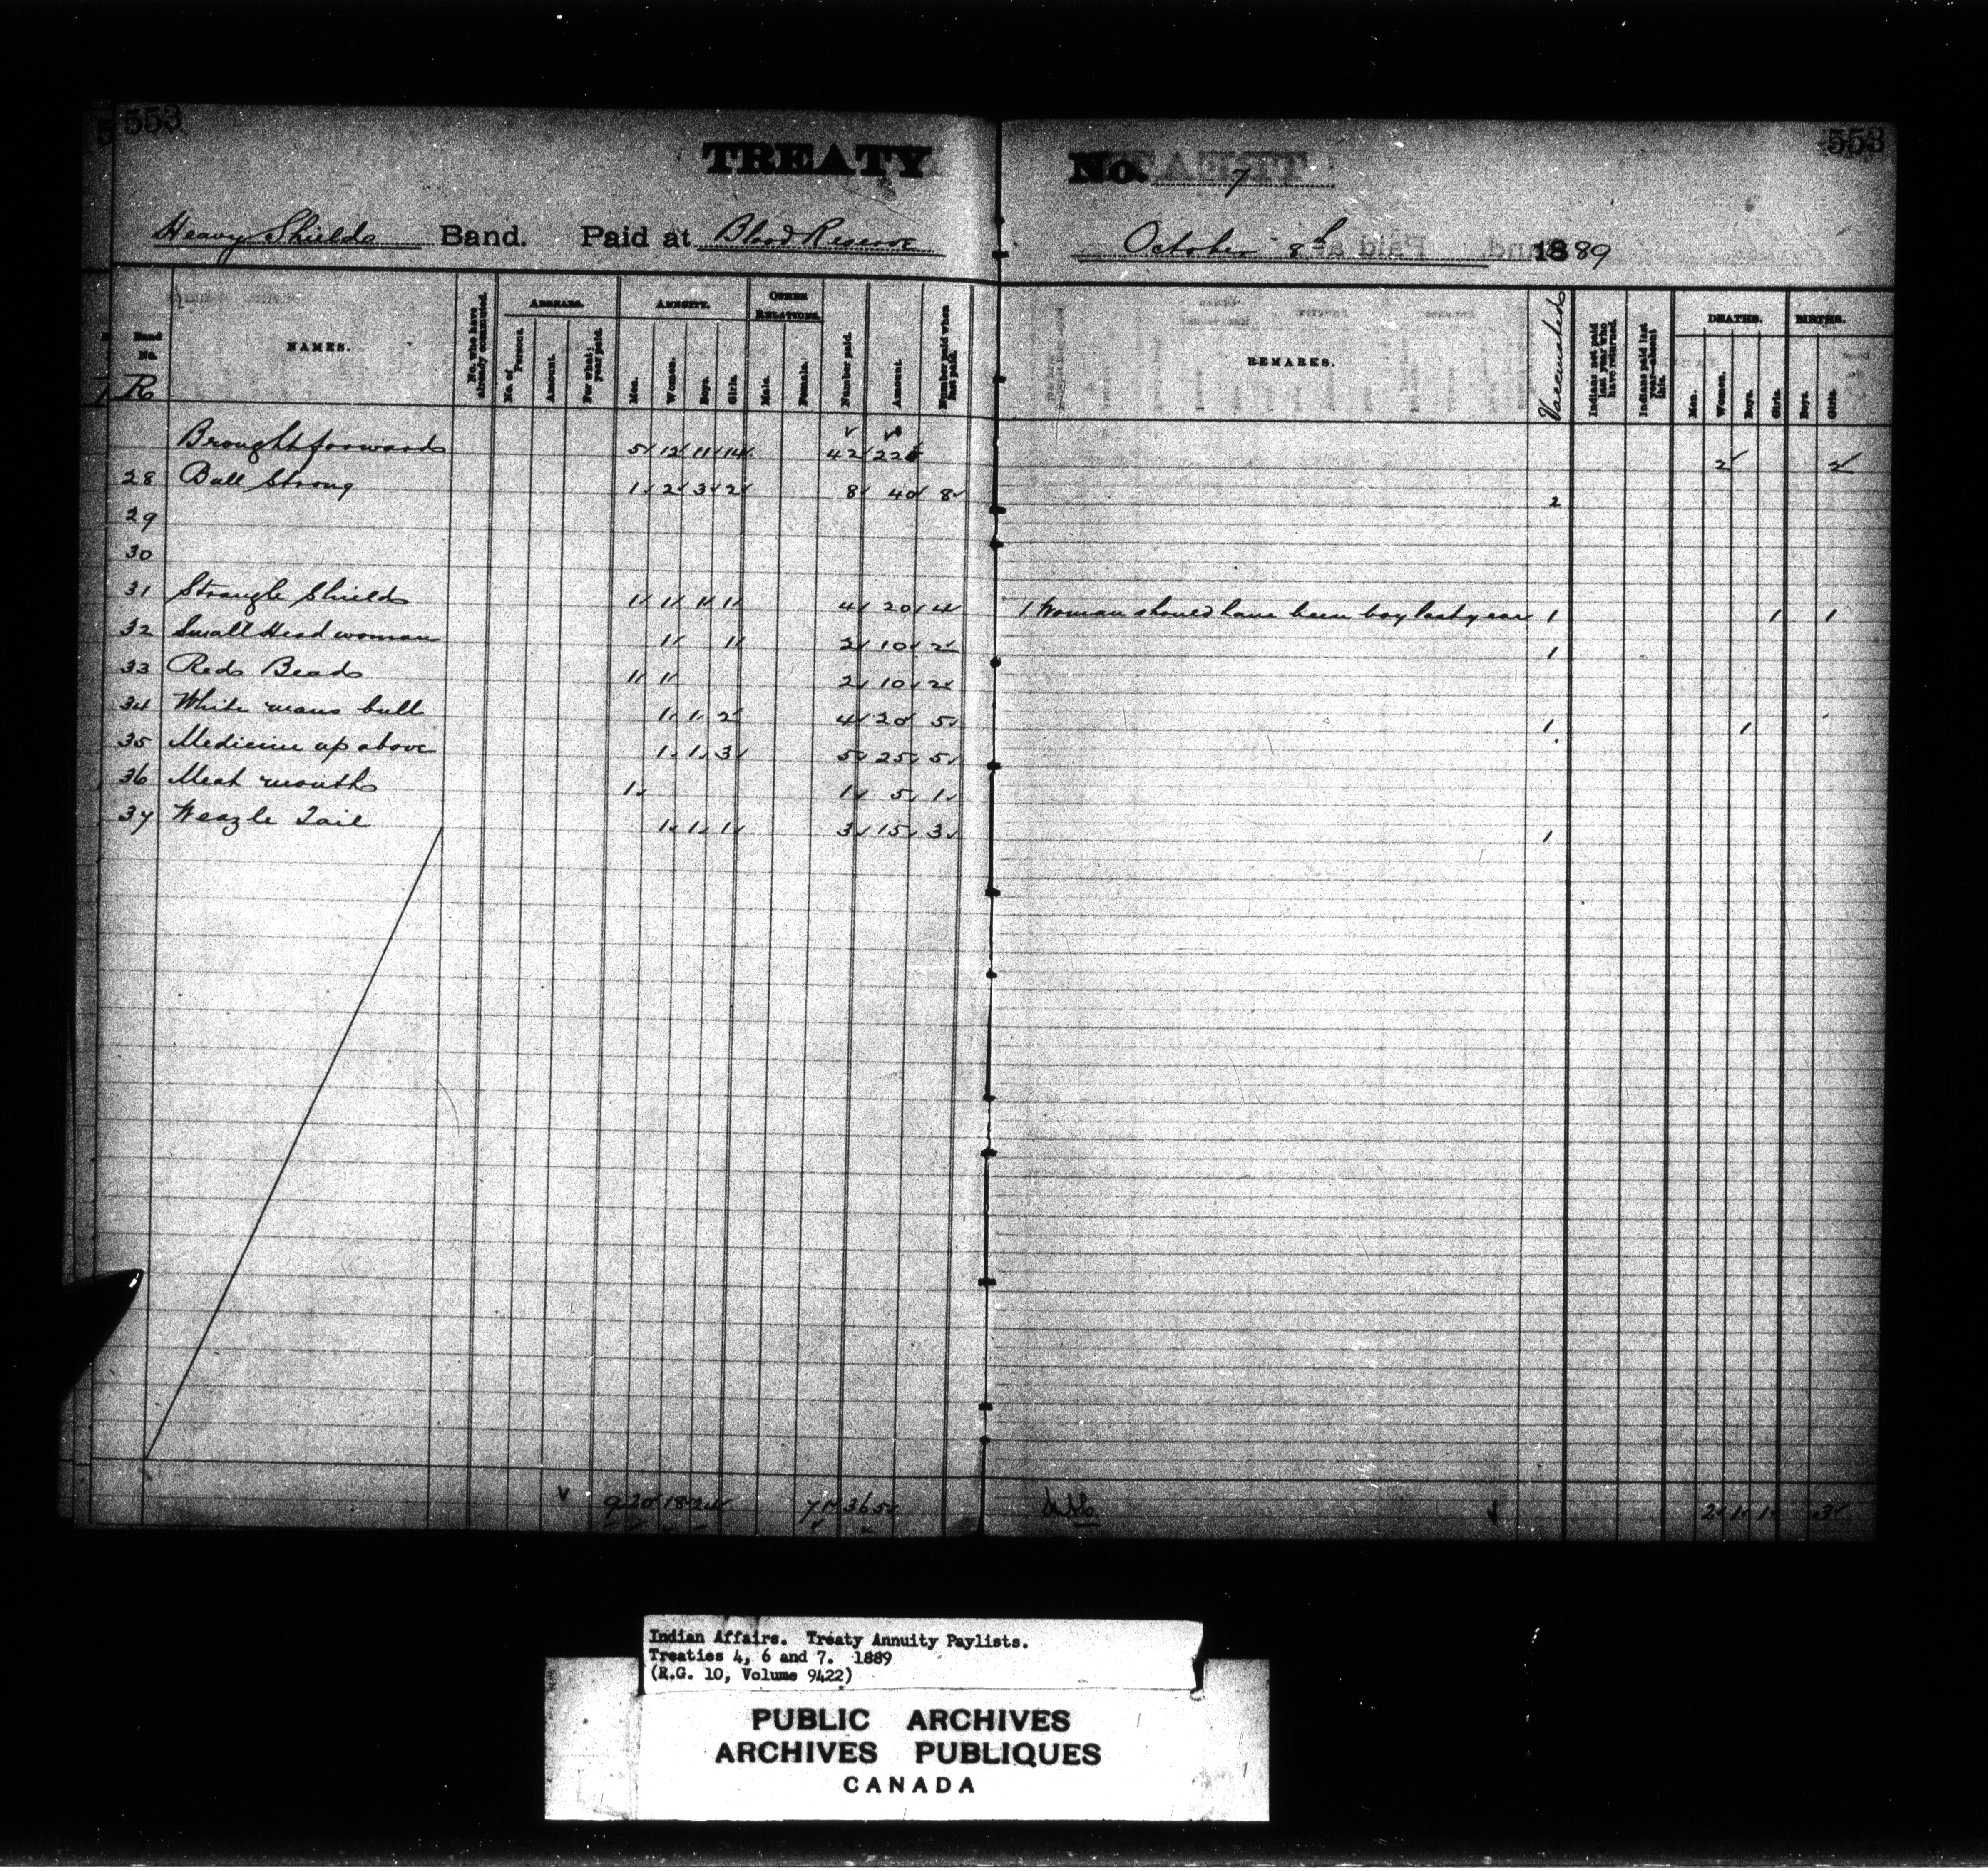 553
553
TREATY No. 7
Heavy Shields Band. Paid at Blood Reserve October 8th 1889
Band No. NAMES. No. who have already commuted. ARREARS. No. of Persons. Amount. For what year paid. ANNUITY. Men. Women. Boys. Girls. OTHER RELATIONS. Male. Female. Number paid. Amount. Number paid when last paid. REMARKS. Vaccinated Indians not paid last year who have returned. Indians paid last year—absent this. DEATHS. Men. Women. Boys. Girls. BIRTHS. Boys. Girls.
R
Brought forward 5 12 11 14 42 2 2
28 Bull Strong 1 2 3 2 8 40 8 2
29
30
31 Strangle Shields 1 1 1 1 4 20 4 1 Woman should have been boy last year 1 1 1
32 Small Head woman 1 1 2 10 2 1
33 Red Beads 1 1 2 10 2
34 White mans bull 1 1 2 4 20 5 1 1
35 Medicine up above 1 1 3 5 25 5
36 Meat mouth 1 1 5 1
37 Weazle Tail 1 1 1 3 15 3 1
9 20 18 24 71 365 2 1 1 3
Indian Affairs. Treaty Annuity Paylists.
Treaties 4, 6 and 7. 1889
(R.G. 10, Volume 9422)
PUBLIC ARCHIVES
ARCHIVES PUBLIQUES
CANADA